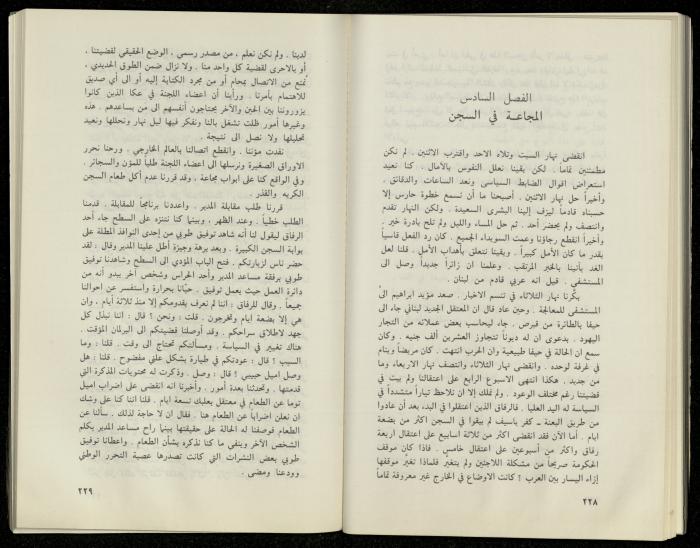 الفصل السادس
المجاعة في السجن
انقضى نهار السبت وتلاه الاحد واقترب الاثنين . لم نكن
مطمئنين تماماً . لكن بقينا نعلل النفوس بالآمال . كنا نعيد
استعراض اقوال الضابط السياسي ونعد الساعات والدقائق .
وأخيراً حل نهار الاثنين . أصبحنا ما أن نسمع خطوة حارس إلا
حسبناه قادماً ليزف إلينا البشرى السعيدة . ولكن النهار تقدم
وانتصف ولم يحضر أحد . ثم حل المساء والليل ولم تلح بادرة خير .
وأخيراً انقطع رجاؤنا وعمت السويداء الجميع . كان رد الفعل قاسياً
بقدر ما كان الأمل كبيراً . وبقينا نتعلق بأهداب الأمل . قلنا لعل
الغد يأتينا بالخبر المرتقب . وعلمنا ان زائراً جديداً وصل الى
المستشفى . قيل انه عربي قادم من لبنان .
بكّرنا نهار الثلاثاء في تنسم الاخبار . صعد مؤيد ابراهيم الى
المستشفى للمعالجة . وحين عاد قال ان المعتقل الجديد لبناني جاء الى
حيفا بالطائرة من قبرص . جاء ليحاسب بعض عملائه من التجار
اليهود . بدعوى ان له ديوناً تتجاوز العشرين ألف جنيه . وكان
سمع ان الحالة في حيفا طبيعية وان الحرب انتهت . كان مريضاً وينام
في غرفة لوحده . وانقضى نهار الثلاثاء وانتصف نهار الاربعاء وما
من جديد . هكذا انتهى الاسبوع الرابع على اعتقالنا ولم يبت في
قضيتنا رغم مختلف الوعود . ولم نملك إلا ان نلاحظ تياراً متشدداً في
السياسة له اليد العليا . فالرفاق الذين اعتقلوا في البدء بعد أن عادوا
من طريق البعنة ـ كفر ياسيف لم يبقوا في السجن اكثر من بضعة
ايام . أما الآن فقد انقضى اكثر من ثلاثة اسابيع على اعتقال اربعة
رفاق واكثر من أسبوعين على اعتقال خامس . فاذا كان موقف
الحكومة صريحاً من مشكلة اللاجئين ولم يتغير فلماذا تغير موقفها
إزاء اليسار بين العرب ؟ كانت الاوضاع في الخارج غير معروفة تماماً
٢٢٨
لدينا . ولم نكن نعلم ، من مصدر رسمي ، الوضع الحقيقي لقضيتنا ،
أو بالاحرى لقضية كل واحد منا . ولا نزال ضمن الطوق الحديدي ،
نُمنع من الاتصال بمحام أو من مجرد الكتابة إليه أو الى أي صديق
للاهتمام بأمرنا . ورأينا أن اعضاء اللجنة في عكا الذين كانوا
يزوروننا بين الحين والآخر يحتاجون أنفسهم الى من يساعدهم . هذه
وغيرها أمور ظلت تشغل بالنا ونفكر فيها ليل نهار ونحللها ونعيد
تحليلها ولا نصل الى نتيجة .
نفدت مؤننا . وانقطع اتصالنا بالعالم الخارجي . ورحنا نحرر
الاوراق الصغيرة ونرسلها الى اعضاء اللجنة طلباً للمؤن والسجائر .
وفي الواقع كنا على ابواب مجاعة . وقد قررنا عدم أكل طعام السجن
الكريه والقذر .
قررنا طلب مقابلة المدير . واعددنا برنامجاً للمقابلة . قدمنا
الطلب خطياً . وعند الظهر ، وبينما كنا نتنزه على السطح جاء أحد
الرفاق ليقول لنا أنه شاهد توفيق طوبي من إحدى النوافذ المطلة على
بوابة السجن الكبيرة . وبعد برهة وجيزة أطل علينا المدير وقال : لقد
حضر ناس لزيارتكم . فتح الباب المؤدي الى السطح وشاهدنا توفيق
طوبي برفقة مساعد المدير وأحد الحراس وشخص آخر يبدو أنه من
دائرة العمل حيث يعمل توفيق . حيّانا بحرارة واستفسر عن احوالنا
جميعاً . وقال للرفاق : اننا لم نعرف بقدومكم إلا منذ ثلاثة أيام . وان
هي إلا بضعة ايام وتخرجون . قلت : ونحن ؟ قال : اننا نبذل كل
جهد لاطلاق سراحكم . وقد أوصلنا قضيتكم الى البرلمان المؤقت .
هناك تغيير في السياسة . ومسألتكم تحتاج الى وقت . قلنا : وما
السبب ؟ قال : عودتكم في طيارة بشكل علني مفضوح . قلنا : هل
وصل اميل حبيبي ؟ قال : وصل . وذكرت له محتويات المذكرة التي
قدمتها . وتحدثنا بعدة أمور . وأخبرنا أنه انقضى على اضراب اميل
توما عن الطعام في معتقل يعليك تسعة ايام . قلنا اننا كنا على وشك
ان نعلن اضرابا عن الطعام هنا . فقال ان لا حاجة لذلك . سألنا عن
الطعام فوصفنا له الحالة على حقيقتها بينما راح مساعد المدير يكلم
الشخص الآخر وينفي ما كنا نذكره بشأن الطعام . واعطانا توفيق
طوبي بعض النشرات التي كانت تصدرها عصبة التحرر الوطني
وودعنا ومضى .
٢٢٩